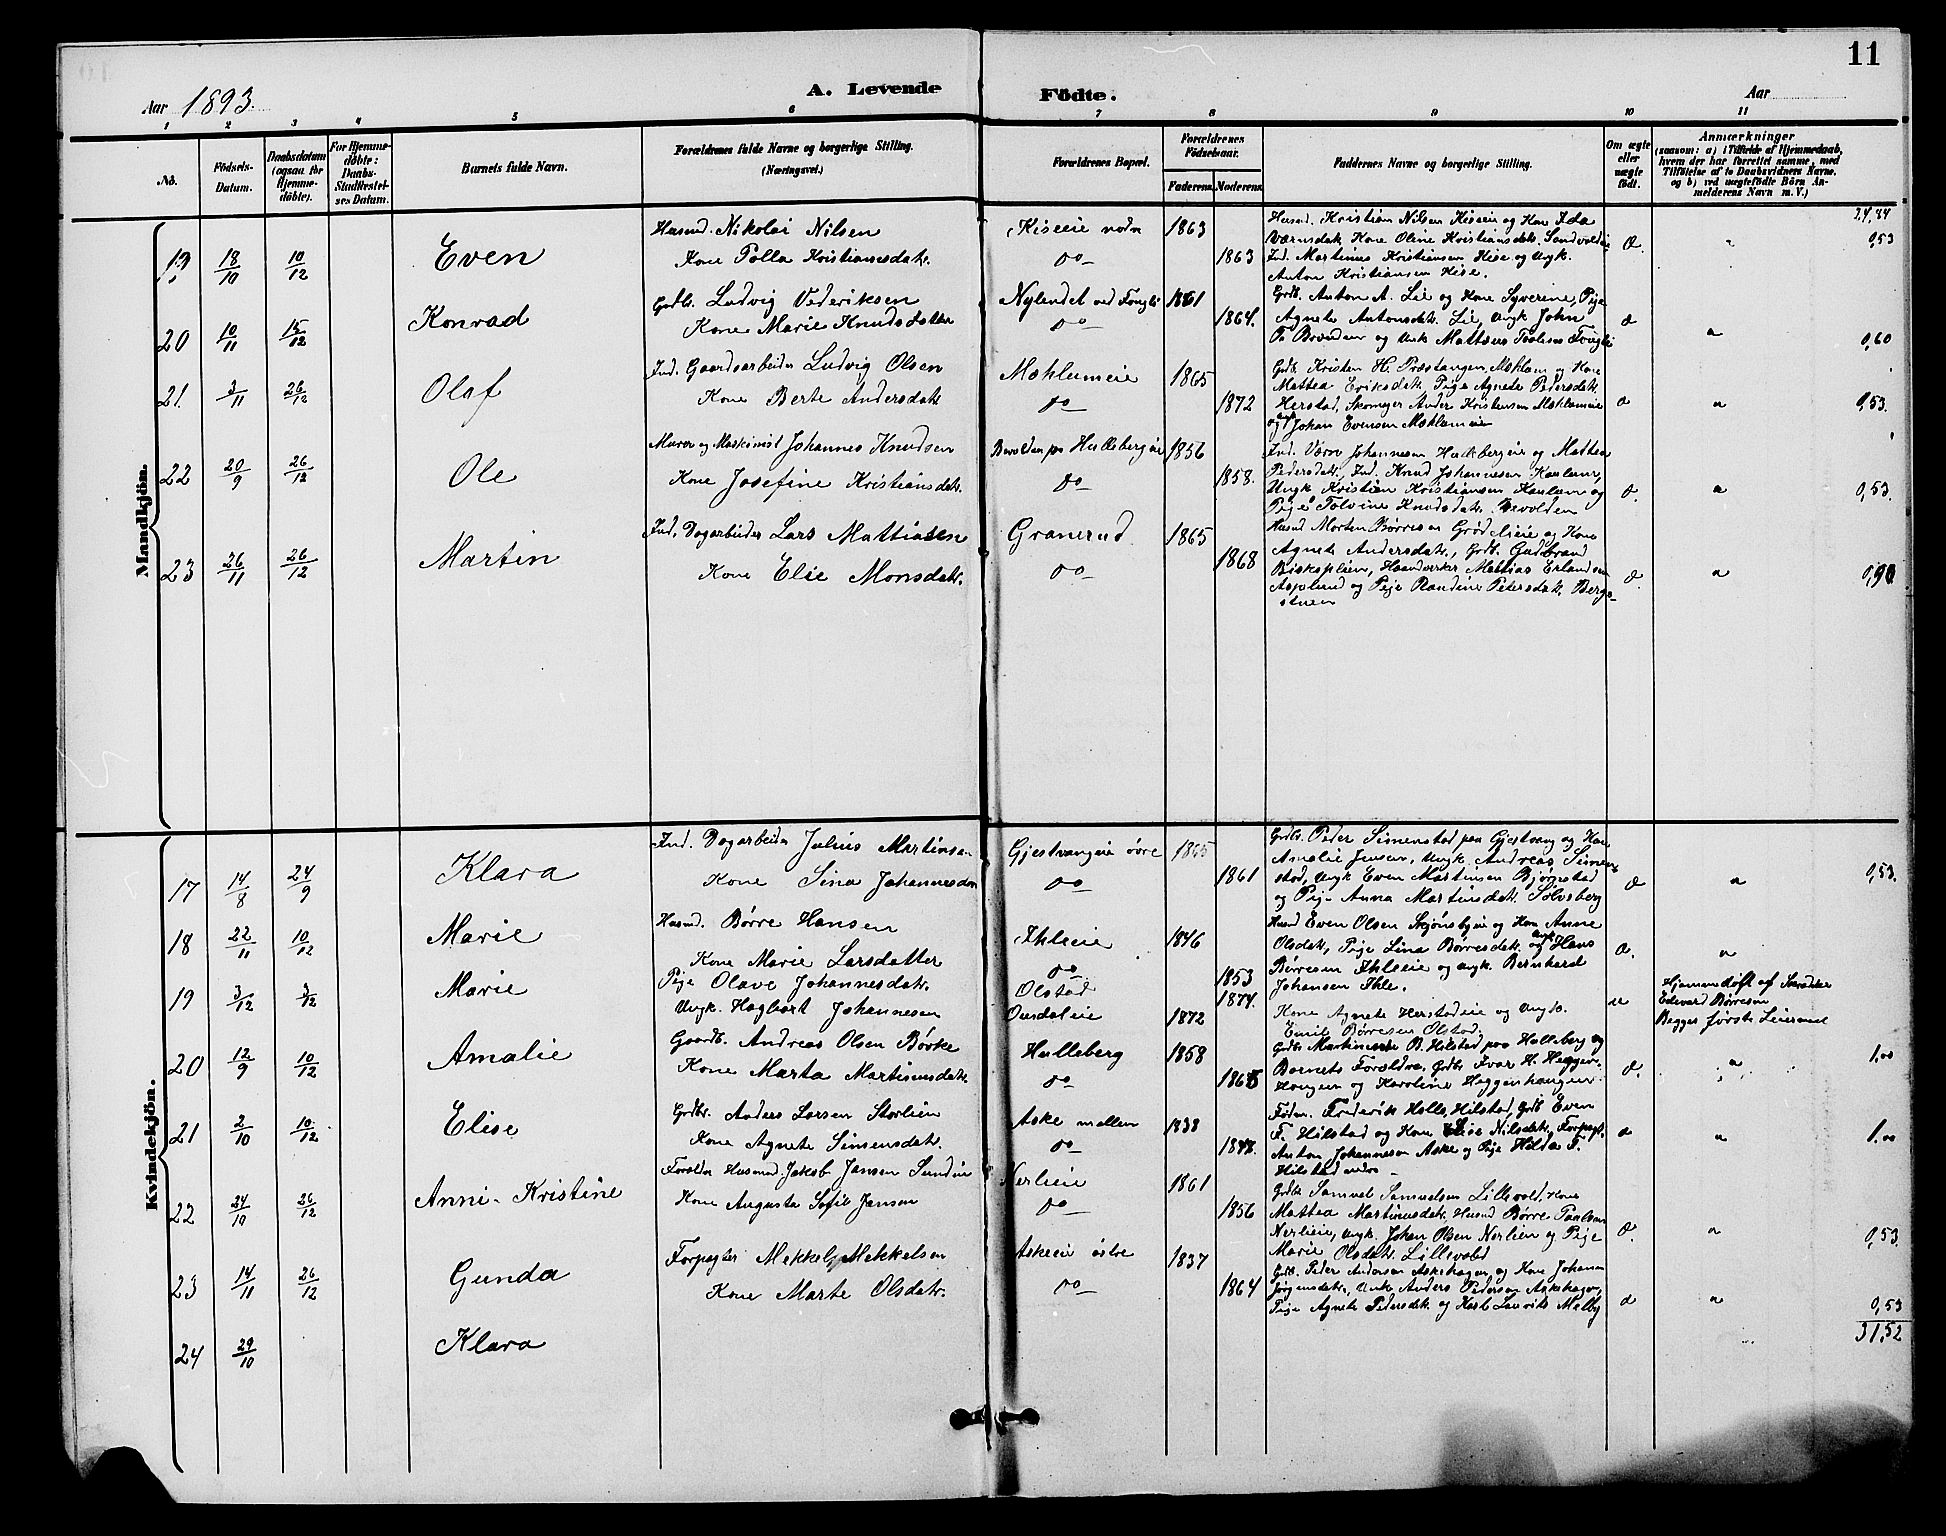 11
Aar 1893.
A. Levende Födte.
Aar
1 2 3 4 5 6 7 8 9 10 11
No.
Födsels-Datum.
Daabsdatum (ogsaa for Hjemme-döbte).
For Hjemme-döbte: Daabs-Stadfæstel-ses Datum.
Barnets fulde Navn.
Forældrenes fulde Navne og borgerlige Stilling.
(Næringsvei.)
Forældrenes Bopæl.
Forældrenes Födselsaar.
Faderens. Moderens.
Faddernes Navne og borgerlige Stilling.
Om ægte eller uægte födt.
Anmærkninger
(saasom: a) i Tilfælde af Hjemmedaab,
hvem der har forrettet samme, med
Tilföielse af to Daabsvidners Navne,
og b) ved uægtefödte Börn An-
melderens Navn m. V.)
24,84
Mandkjön.
19 18/10 10/12 Even
Husmd. Nikolai Nilsen
Kone Polla Kristiansdatr.
Kiseeie nodre
do
1863
1863
Husmd. Kristian Nilsen Kiseeie og Kone Ida
Kone Oline Kristiansdatr.
Ind. Martinus Kristiansen Kise og Ungk.
Anton Kristiansen Kise.
0,53
20 10/11 15/12 Konrad
Grdbr. Ludvig Vederiksen
Kone Marie Knudsdatter
Nylendet ved
do
1861
1864.
Grdb. Anton A. Lie og Kone Syverine, Pige
Agnete Antonsdatr. Lie, Ungk John
og Ungk Mattæus Paulsen
0,60
21. 3/11 26/12 Olaf
Ind. Gaardsarbeider Ludvig Olsen
Kone Berte Andersdatr
Mæhlumeie
do
1865
1872
Grdb. Kristen H. Præstangen, Mæhlum og Kone
Mattea Eriksdatr, Pige Agnete Pedersdatr
Herstad, Skomager Kristensen Mæhlumeie
og Johan Evensen Mæhlumeie
0,53.
22 20/9 26/12 Ole
Murer og Maskinist Johannes Knudsen
Kone Josefine Kristiansdatr.
Hullebergeie
do
1856
1858.
Ind. Johannesen og Mattea
Pedersdatr, Ind. Knud Johannesen
Ungk Kristian Kristiansen og
Pige Knudsdatr.
0,53.
23 26/11 26/12 Martin
Ind. Dagarbeider Lars Mattiasen
Kone Elie Monsdatr.
Granerud
do
1865
1868
Husmd Morten Børresen og Kone
Agnete Andersdatr, Grdb. Gudbrand
Haandverker Mattias Erlandsen
Asplund og Pige Randine Petersdatr. Berg-
stuen
0,90
Kvindekjön.
17 14/8 24/9 Klara
Ind. Dagarbeider Julius Martinsen
Kone Sina Johannesdatr
Gjestvangeie øvre
do
1865
1861
Grdbr. Peder Simenstad paa Gjestvang og Kone
Amalie Jensen, Ungk. Andreas Simen-
stad, Ungk Even Martinsen Bjørnstad
og Pige Anna Martinsdatr. Sølvsberg
0,53.
18 22/11 10/12 Marie
Husmd. Børre Hansen
Kone Marie Larsdatter
Ihleeie
do
1846
1853
Husmd Even Olsen og Kone Anne
Olsdatr, Pige Lina Børresdatr. og Hans
Børresen Ihleeie og Ungk. Bernhard
Johansen Ihle.
19 3/12 3/12 Marie
Pige Olave Johannesdatr.
Ungk. Hagbart Johannesen
Olstad
1874.
1872
Kone Agnete Herstadeie og Ungk.
Emil Børresen Olstad.
u
Hjemmedøbt af
Edvard Børresen
Begges første Leiermaal
20 12/9 10/12 Amalie
Gaardb. Andreas Olsen Børke
Kone Marta Martinusdatr.
Hulleberg
do
1858
1865
Grdbr Martinus B. Hilstad paa Hulleberg og
Barnets Forældre, Grdb. Ivar H. Heggen-
haugen og Karoline Heggenhaugen
1,00
21 2/10 10/12 Elise
Grdbr. Anders Larsen Storlien
Kone Agnete Simensdatr.
Aske mellem
do
1838
1848.
Føder. Fredrik Hilstad, Grdb Even
F. Hilstad og Kone Elise Nilsdatr, Forpagt.
Anton Johannesen Aske og Pige Hilda F.
Hilstad nedre
1,00
22 24/10 26/12 Anni-Kristine
Forældre Husmd. Jakob Jansen Sundin
Kone Augusta Sofie Jansen
Nerlieie
do
1861
1856
Grdbr Samuel Samuelsen Lillevold, Kone
Mattea Martinusdatr. Husmd Børre Paulsen
Nerlieie, Ungk. Johan Olsen Nerlien og Pige
Marie Olsdatr. Lillevold
0,53.
23 14/11 26/12 Gunda
Forpagter Mekkel Mekkelsen
Kone Marte Olsdatr.
Askeeie østre
do
1837
1864
Grdb. Peder Andersen Askehagen og Kone Johanne
Jørgensdatr, Ungk Anders Pedersen Askehagen,
Pige Agnete Pedersdatr og Melby
0,53
24 29/10 Klara
31,52